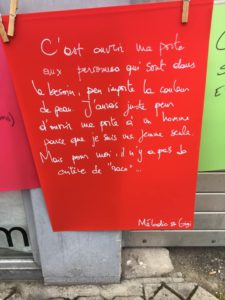 C'est ouvrir ma porte
aux personnes qui sont dans
le besoin, peu importe la couleur
de peau. J'aurais juste peur
d'ouvrir ma porte à un homme
parce que je suis une jeune seule.
Mais pour moi, il n'y a pas de
critère de "race"...
Mélusine &
m